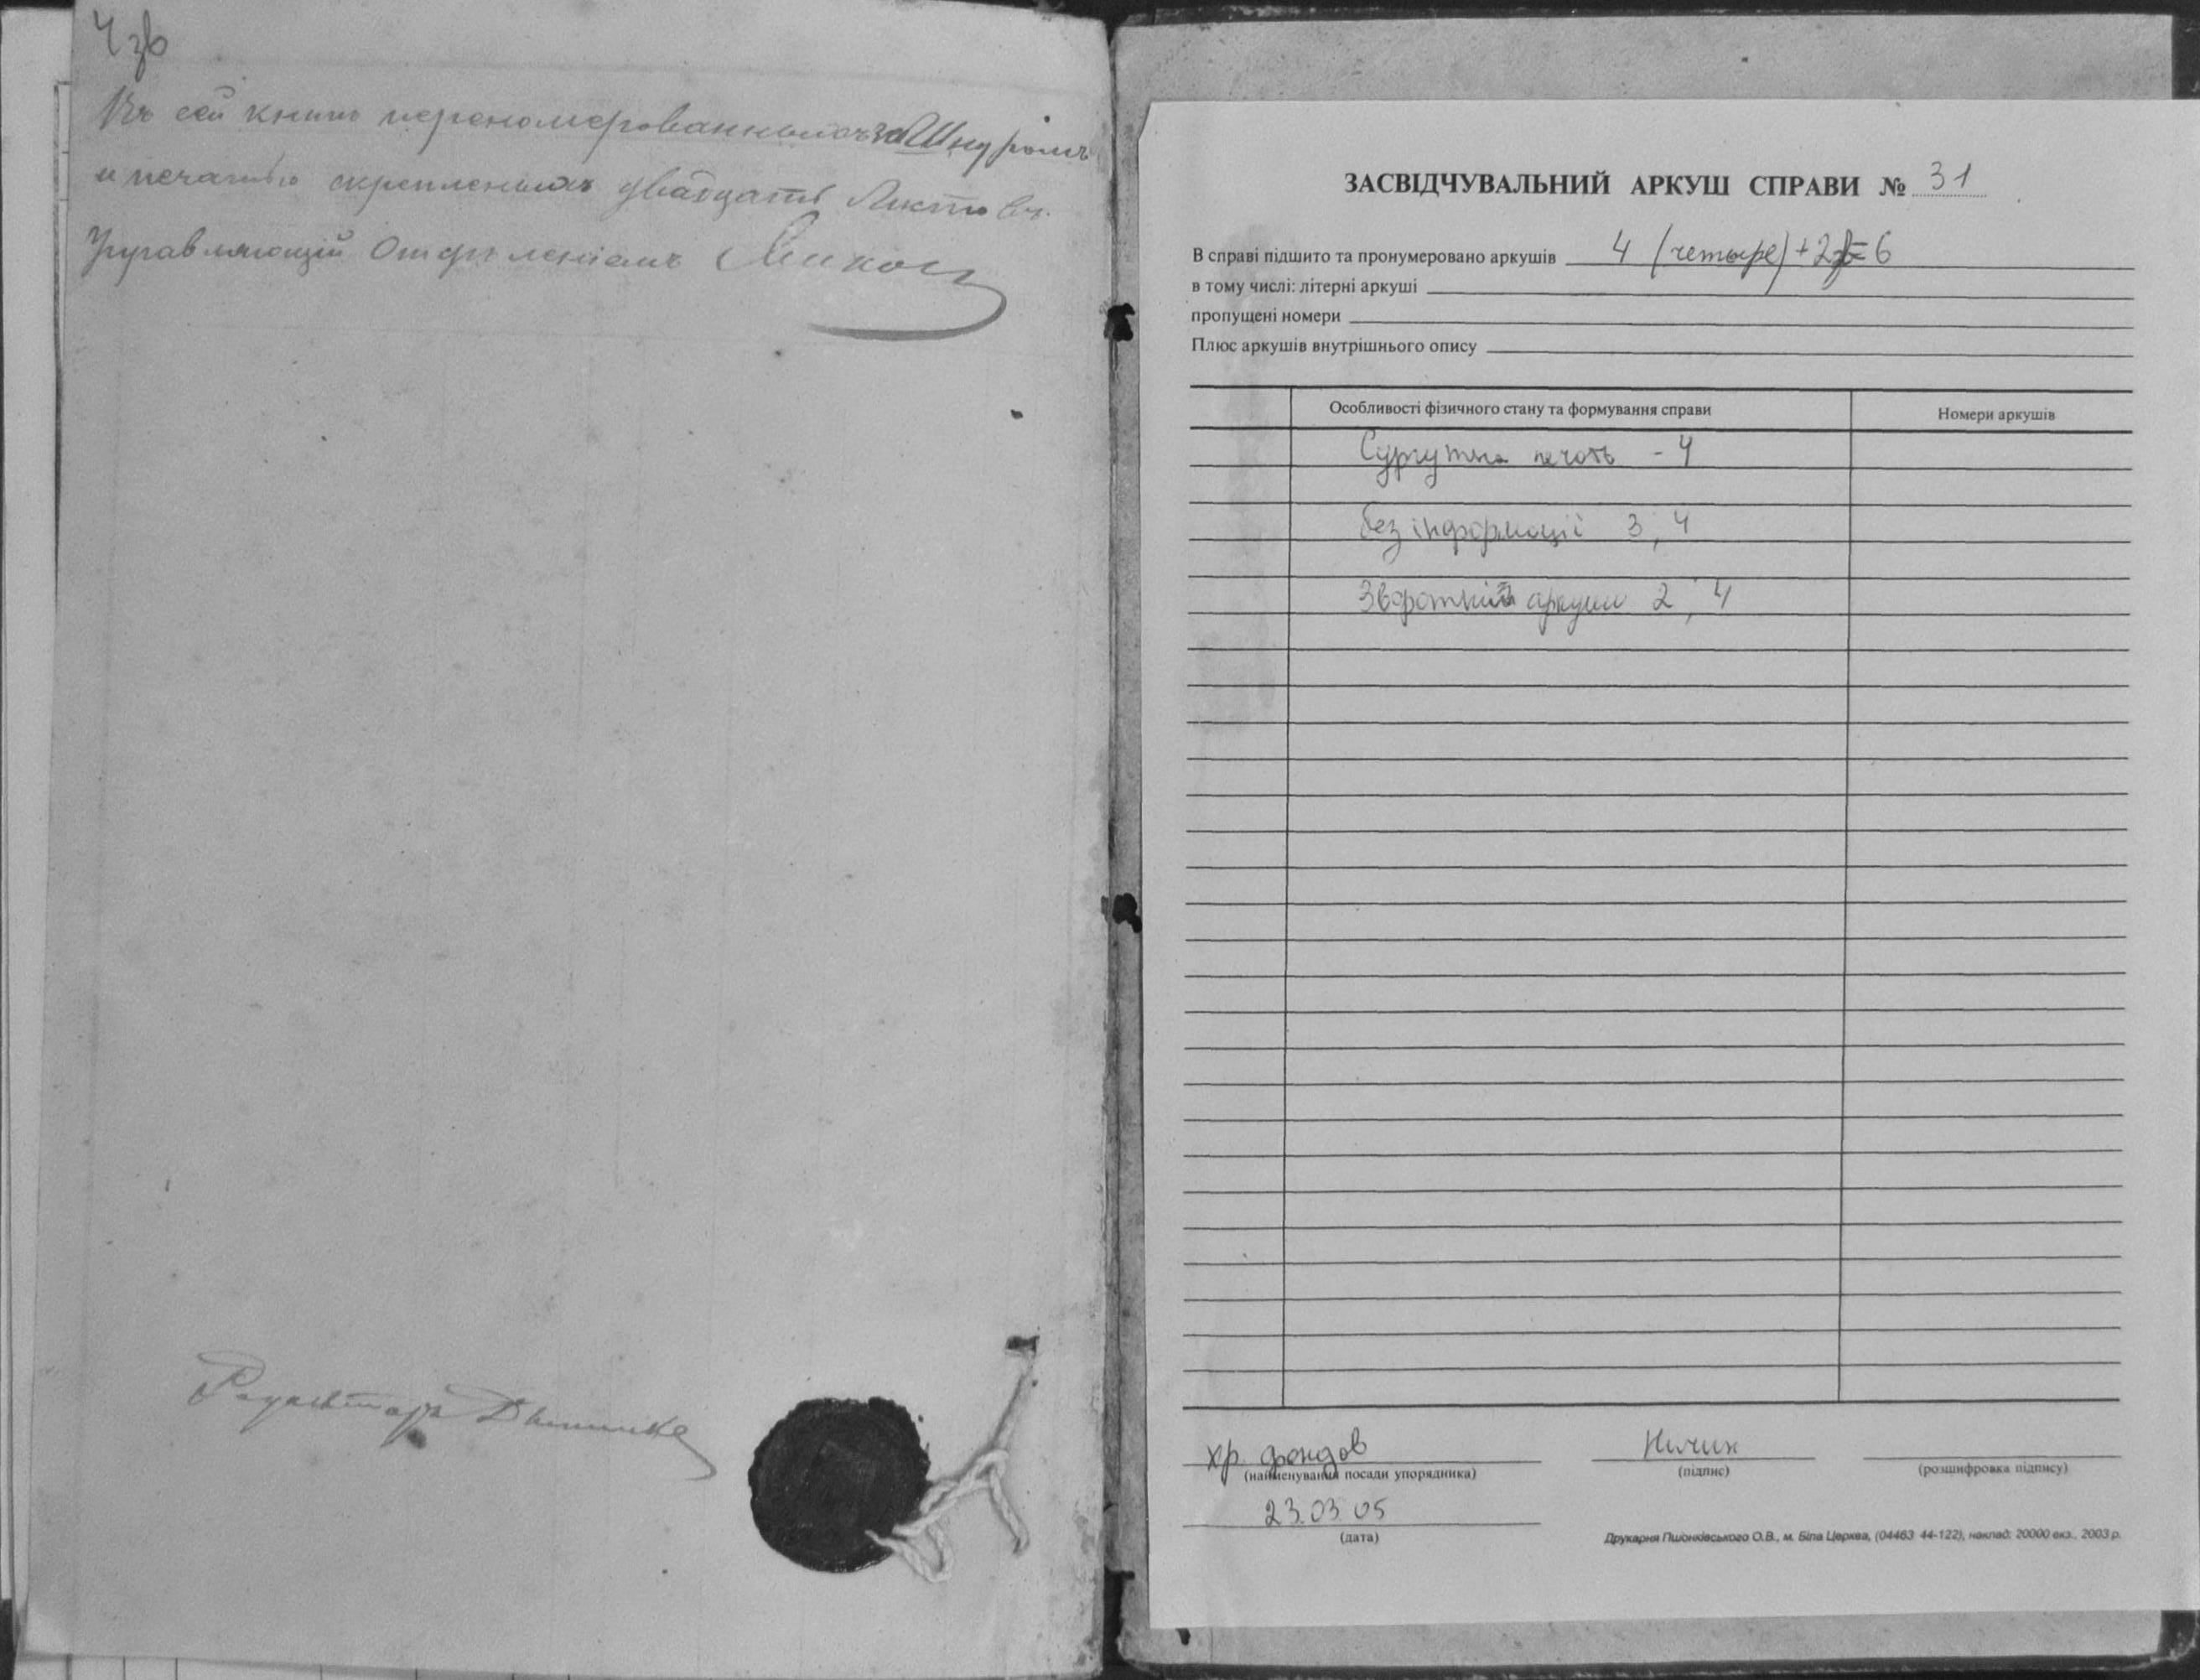 4 зв
Въ сей книги переномерованныхъ за Шнуромъ
и печатью скрепленныхъ двадцать Листовъ.
Управляющій Отдѣленіемъ
Редакторъ
ЗАСВІДЧУВАЛЬНИЙ АРКУШ СПРАВИ № 31
В справі підшито та пронумеровано аркушів 4 (четыре) + 2зв = 6
в тому числі: літерні аркуші
пропущені номери
Плюс аркушів внутрішнього опису
Особливості фізичного стану та формування справи Номери аркушів
Сургутна печать - 4
без інформації 3, 4
Зворотній аркуш 2, 4
хр. фондов
(найменування посади упорядника) (підпис) (розшифровка підпису)
23.03 05
(дата)
Друкарня Пшонківського О.В., м. Біла Церква, (04463 44-122), наклад: 20000 екз., 2003 р.